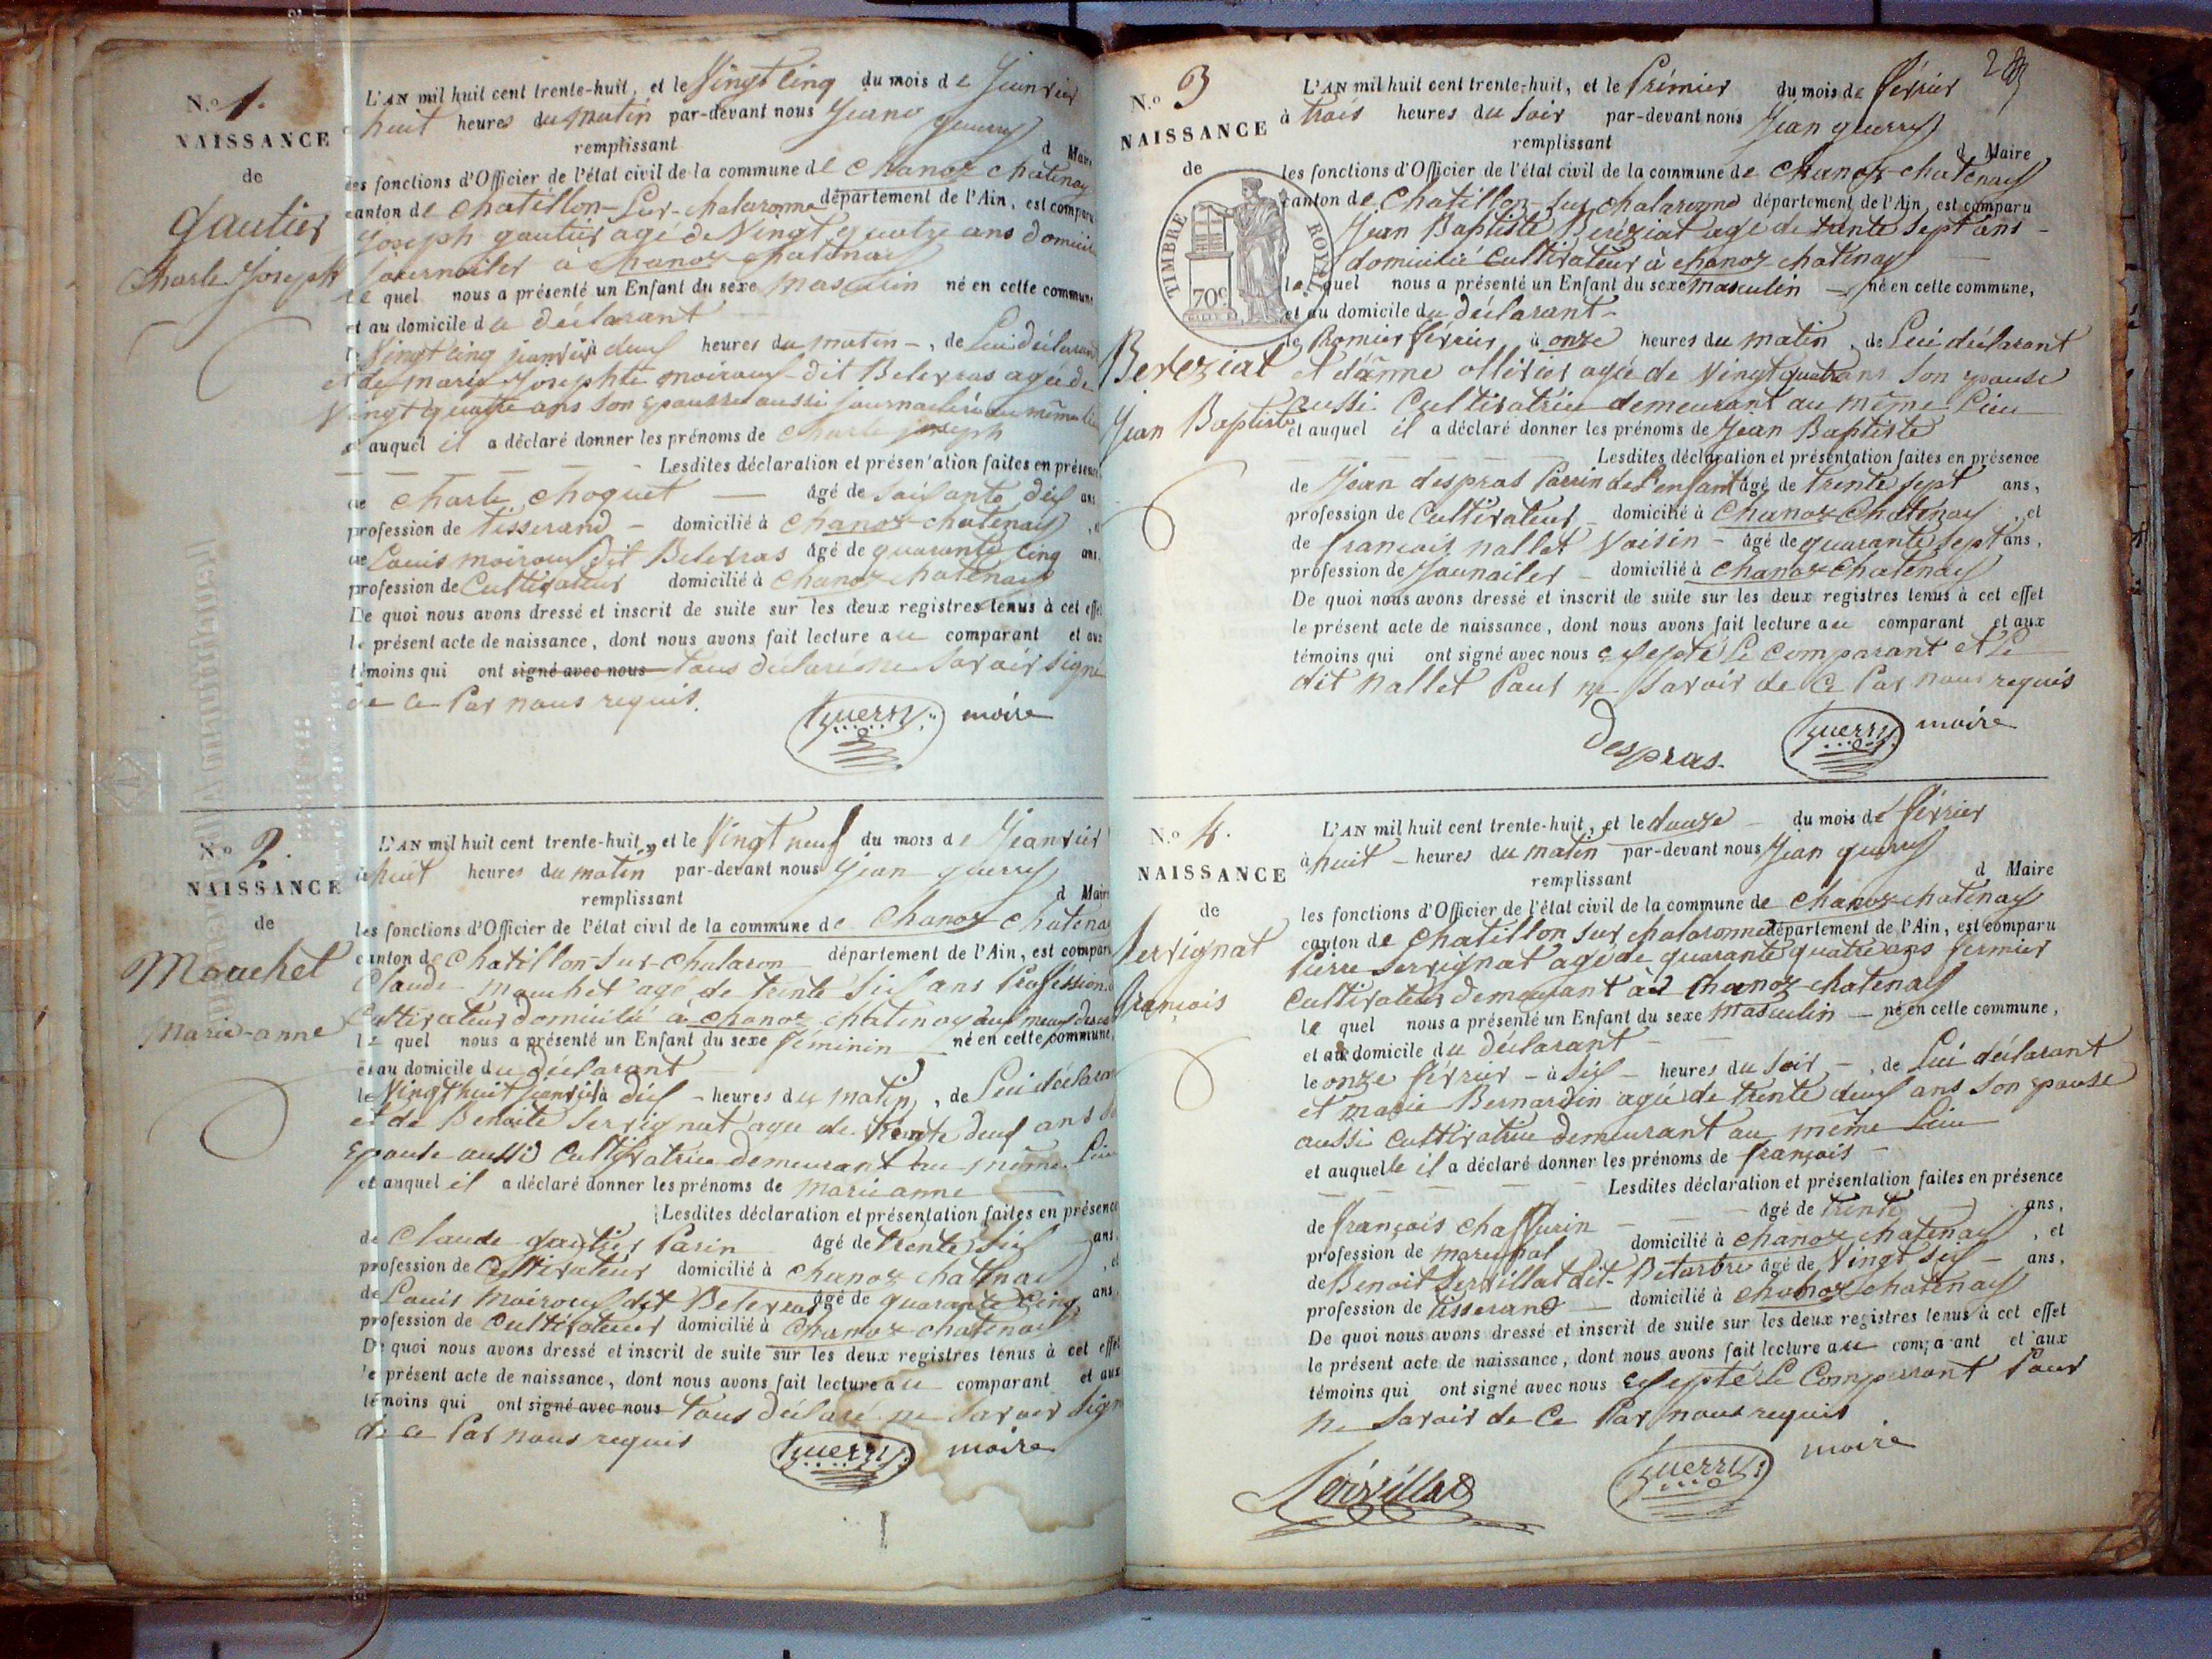 N.º 1.
NAISSANCE
de
Gautier
Charle Joseph
L'AN mil huit cent trente-huit, et le Vingt Cinq du mois de Janvier
huit heures du matin par-devant nous Jean guerry
remplissant d Maire
les fonctions d'Officier de l'état civil de la commune de Chanoz chatenay
canton de Chatillon-Sur-chalaronne département de l'Ain, est comparu
Joseph gautier agé de Vingt quatre ans domicilié
journailer à Chanoz chatenay
le quel nous a présenté un Enfant du sexe masculin né en cette commune
et au domicile du déclarant
le Vingt Cinq janvier à deux heures du matin -, de Lui déclarant
et de marie Josephte moiroux dit Beleyras agée de
Vingt quatre ans Son Epousse aussi journalière au même lieu
et auquel il a déclaré donner les prénoms de Charle joseph
Lesdites déclaration et présentation faites en présence
de Charle Choquet — âgé de Soisante dix ans
profession de tisserand - domicilié à Chanoz-chatenay
de Louis moiroux dit Beleyras âgé de quarante Cinq ans.
profession de Cultivateur domicilié à Chanoz chatenay
De quoi nous avons dressé et inscrit de suite sur les deux registres tenus à cet effet
le présent acte de naissance, dont nous avons fait lecture au comparant et aux
témoins qui ont signé avec nous tous déclaré ne Savoir signé
de Ce Par nous requis.
Guerry maire
N.º 2.
NAISSANCE
de
Mouchet
Marie-anne
L'AN mil huit cent trente-huit, et le Vingt neuf du mois de Jeanvier
à huit heures du matin par-devant nous Jean guerry
remplissant d Maire
les fonctions d'Officier de l'état civil de la commune de Chanoz Chatenay
canton de Chatillon-Sur-Chalaron département de l'Ain, est comparu
Claude mouchet agé de trente Six ans Proféssion
Cultivateur domicilié à Chanoz chatenay
le quel nous a présenté un Enfant du sexe féminin né en cette commune,
et au domicile du déclarant
le Vingt huit janvier à dix - heures du matin, de Lui déclarant
et de Benoite Servignat agée de trente deux ans
Epouse aussi Cultivatrice demeurant au même Lieu
et auquel il a déclaré donner les prénoms de marie anne
Lesdites déclaration et présentation faites en présence
de Claude gautier Parin âgé de trente Six ans,
profession de Cultivateur domicilié à Chanoz chatenay, et
de Louis Moiroux dit Beleyras âgé de quarante Cinq ans,
profession de Cultivateur domicilié à Chanoz-chatenay
De quoi nous avons dressé et inscrit de suite sur les deux registres tenus à cet effet
le présent acte de naissance, dont nous avons fait lecture au comparant et aux
témoins qui ont signé avec nous tous déclaré ne Savoir Signé
de Ce Par nous requis
Guerry maire
N.º 3
NAISSANCE
de
TIMBRE ROYAL
70c
Bereziat
Jean Baptiste
L'AN mil huit cent trente-huit, et le Prémier du mois de février
à trois heures du Soir par-devant nous Jean guerry
remplissant d Maire
les fonctions d'Officier de l'état civil de la commune de Chanoz-chatenay
canton de Chatillon-sur chalaronne département de l'Ain, est comparu
Jean Baptiste Bereziat agé de trente Sept ans -
domicilié Cultivateur à chanoz-chatenay
le quel nous a présenté un Enfant du sexe masculin - né en cette commune,
et au domicile du déclarant -
le Premier février à onze heures du matin, de Lui déclarant
et d'anne ollivier agée de Vingt quatre ans Son Epouse
aussi Cultivatrice demeurant au même Lieu
et auquel il a déclaré donner les prénoms de Jean Baptiste
Lesdites déclaration et présentation faites en présence
de Jean despras Parrin de L'enfant âgé de trente sept ans,
profession de Cultivateur domicilié à Chanoz Chatenay, et
de françois nallet Voisin - âgé de quarante sept ans,
profession de Jounailer - domicilié à Chanoz chatenay
De quoi nous avons dressé et inscrit de suite sur les deux registres tenus à cet effet
le présent acte de naissance, dont nous avons fait lecture au comparant et aux
témoins qui ont signé avec nous Exsepté Le Comparant et Le
dit nallet Pour ne Savoir de Ce Par nous requis
Despras. Guerry maire
N.º 4.
NAISSANCE
de
Servignat
françois
L'AN mil huit cent trente-huit, et le douze - du mois de février
à huit - heures du matin par-devant nous Jean guerry
remplissant d Maire
les fonctions d'Officier de l'état civil de la commune de Chanoz-chatenay
canton de Chatillon sur chalaronne département de l'Ain, est comparu
Pierre Servignat agé de quarante quatre ans fermier
Cultivateur demeurant à Chanoz-chatenay
le quel nous a présenté un Enfant du sexe Masculin - né en cette commune,
et au domicile du déclarant -
le onze février - à Six - heures du Soir -, de Lui déclarant
et marie Bernardin agée de trente deux ans Son Epouse
aussi Cultivatrice demeurant au même Lieu
et auquelle il a déclaré donner les prénoms de françois -
Lesdites déclaration et présentation faites en présence
de françois Chaffurin - âgé de trente ans,
profession de marechal domicilié à Chanoz chatenay, et
de Benoit Servillat dit - Betarbre âgé de Vingt Six - ans,
profession de tisserand — domicilié à Chanoz chatenay
De quoi nous avons dressé et inscrit de suite sur les deux registres tenus à cet effet
le présent acte de naissance, dont nous avons fait lecture au comparant et aux
témoins qui ont signé avec nous Exsepté Le Comparant Pour
ne Savoir de Ce Par nous requis.
Servillat Guerry maire